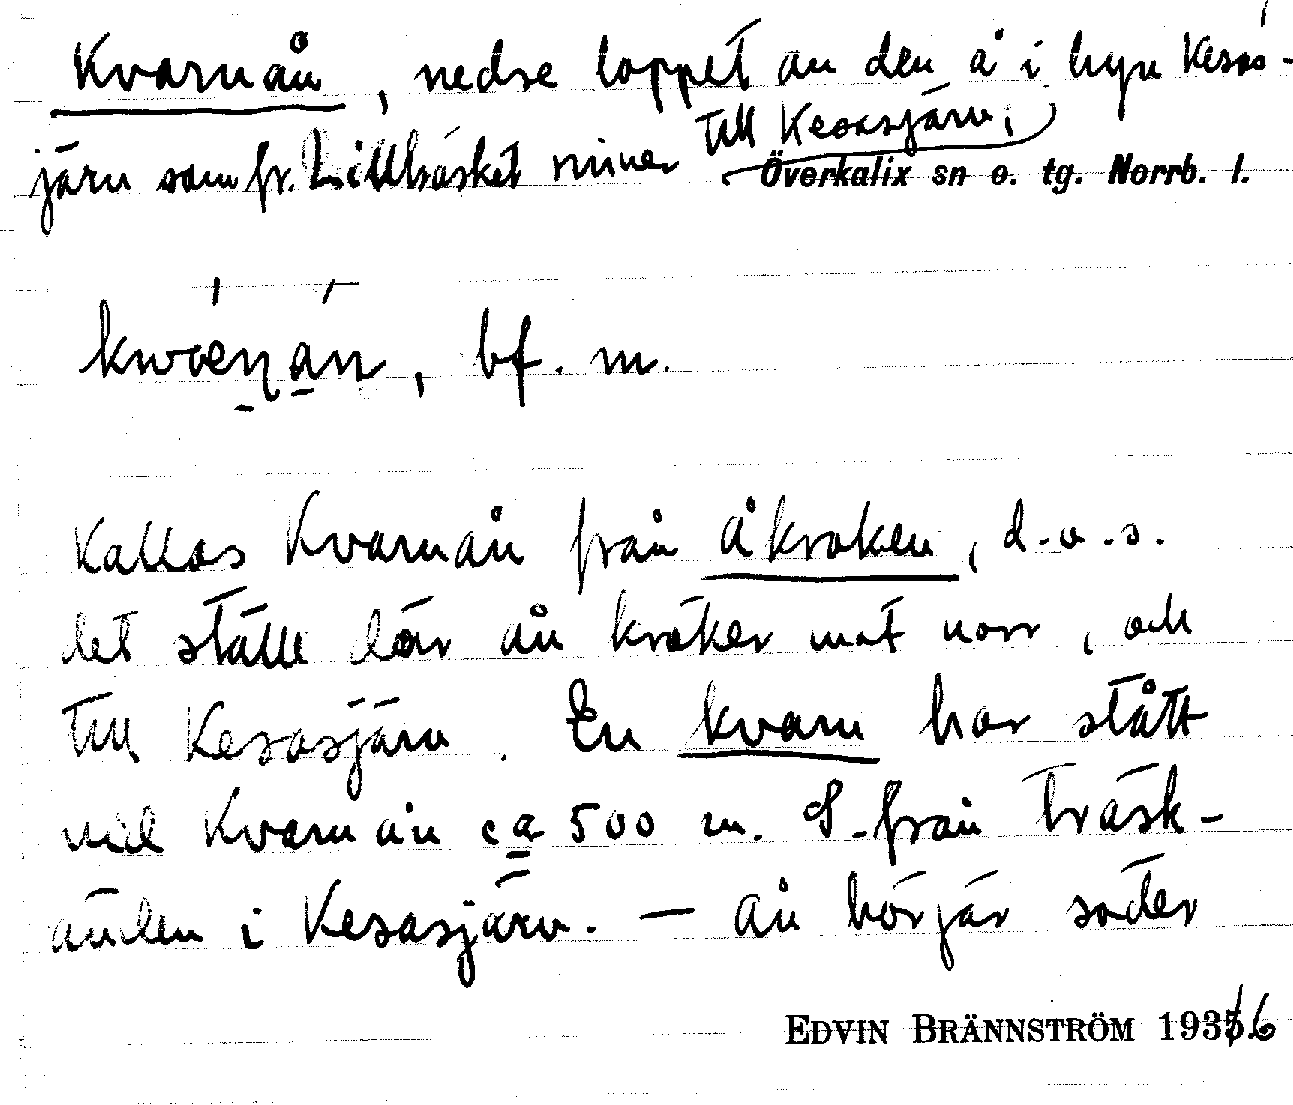 Kvarnån, nedre loppet av den å i byn Kesas-
järv som fr. Lillträsket rinner till Kesasjärv;
Överkalix sn o. tg. Norrb. l.
bf. m.
Kallas Kvarnån från Åkroken, d.v.s.
det ställe där ån kröker mot norr, och
till Kesasjärv. En kvarn har stått
vid Kvarnån ca 500 m. S. från träsk-
änden i Kesasjärv. — Ån börjar söder
EDVIN BRÄNNSTRÖM 1936